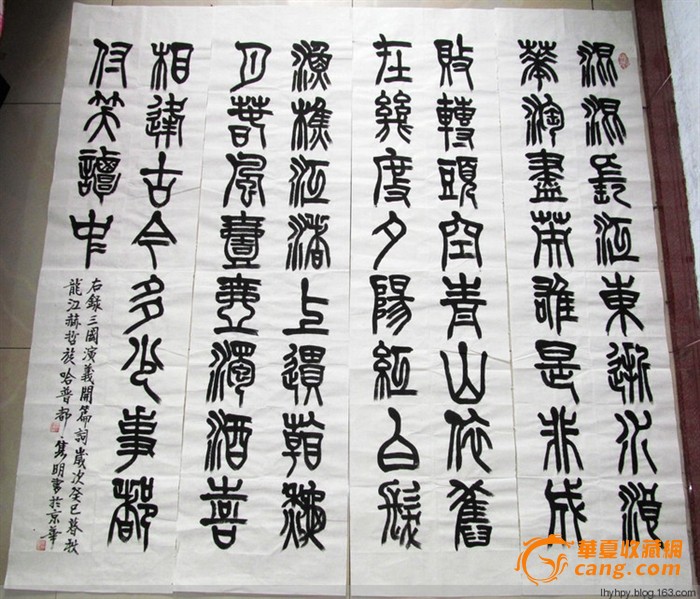 混混長江東逝水浪
華淘盡英雄是非成
敗轉頭空青山依舊
在幾度夕陽紅白髮
漁樵江渚上慣看秋
月春風壹壺濁酒喜
相逢古今多少事都
付笑談中
右錄三國演義開篇詞歲次癸巳暮秋
龍江赫哲族哈普都·雋明書於京華
華夏收藏網
cang.com
lhyhpy.blog.163.com